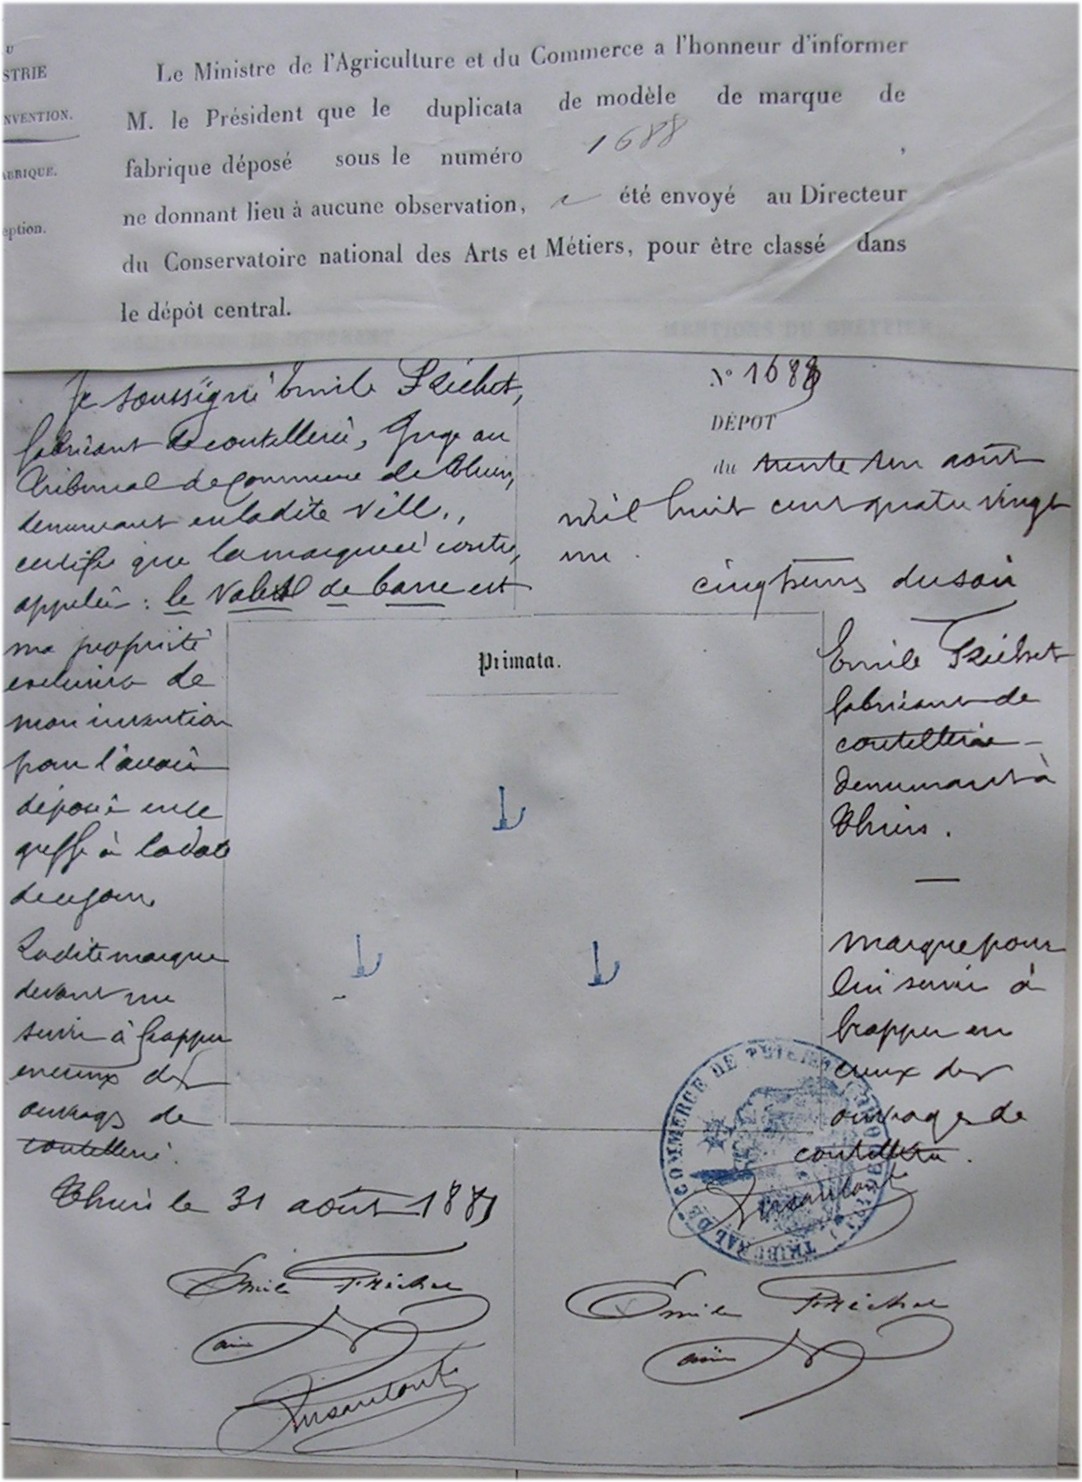 U
STRIE
NVENTION.
ABRIQUE.
eption.
Le Ministre de l'Agriculture et du Commerce a l'honneur d'informer
M. le Président que le duplicata de modèle de marque de
fabrique déposé sous le numéro 1688,
ne donnant lieu à aucune observation, a été envoyé au Directeur
du Conservatoire national des Arts et Métiers, pour être classé dans
le dépôt central.
Je soussigné Emile Fréchet,
fabricant de coutellerie, Juge au
Tribunal de Commerce de Thiers,
demeurant en ladite Ville,
certifie que la marque ci contre,
appelée : le Valet de barre est
ma propriété
exclusive de
mon invention
pour l'avoir
déposée en ce
greffe à la date
de ce jour.
Ladite marque
devant me
servir à frapper
en creux des
ouvrages de
coutellerie.
Thiers le 31 août 1881
Emile Fréchet
ainé
N° 1688
DÉPOT
du trente un août
mil huit cent quatre vingt
un.
cinq heures du soir
Primata.
Emile Fréchet
fabricant de
coutellerie
demeurant à
Thiers.
Marque pour
lui servir à
frapper en
creux des
ouvrages de
coutellerie.
TRIBUNAL DE COMMERCE DE THIERS
Emile Fréchet
ainé